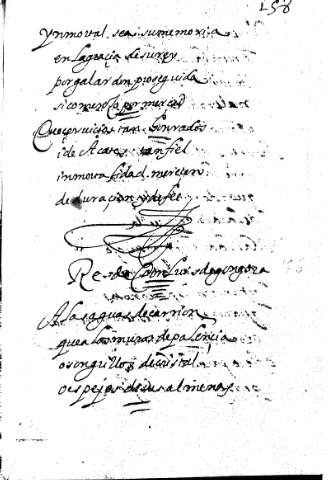 158
ynmoval sea sumemoria
en la graçia de su rey
por galardon proseguida
si como lo por merced
Que serviçios tan honrados
i de Acates tan fiel
inmovilidad mereçen
de duraçion y de fee
Re de Don Luis de gongora
A las aguas de carrion
que a los muros de palençia
o son grillos de cristal
o espejos de sus almenas